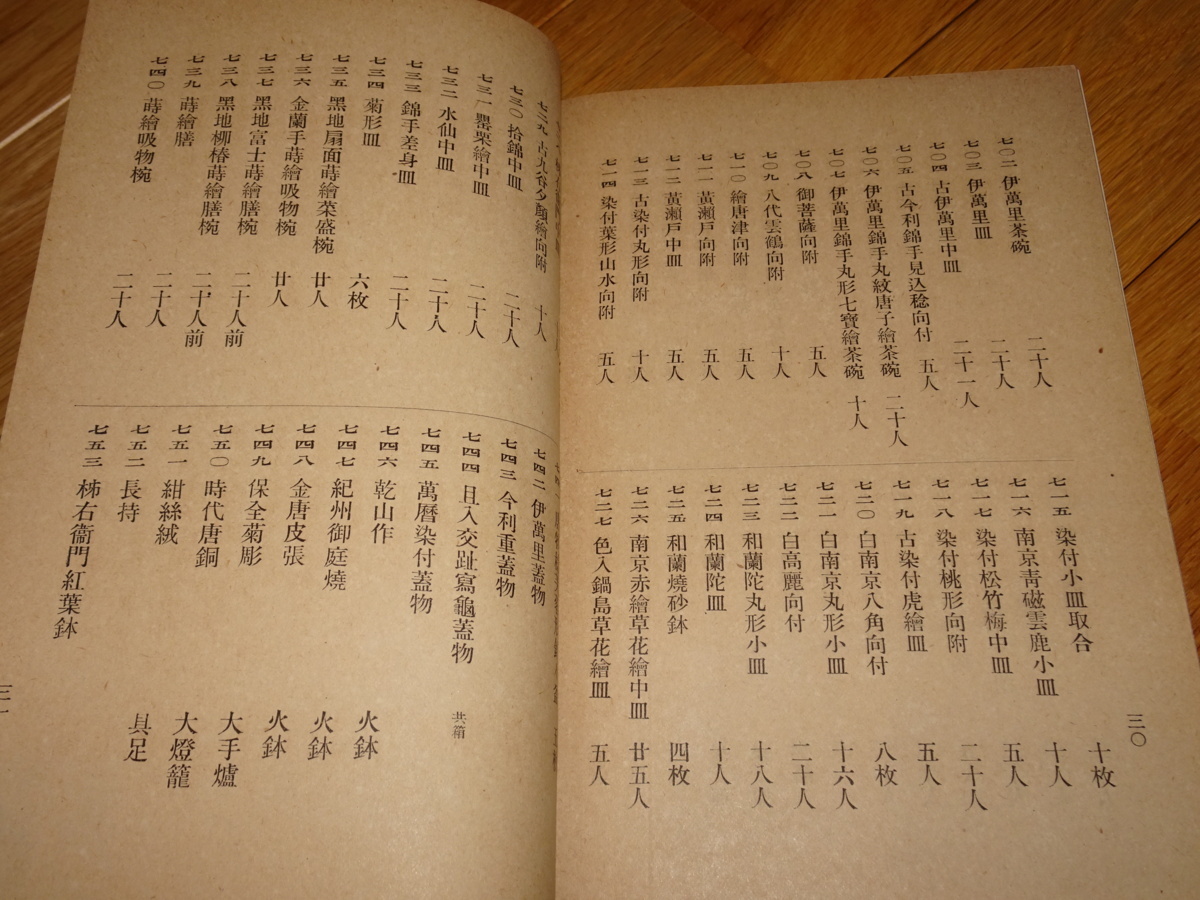 七〇二 伊萬里茶碗 二十人
七〇三 伊萬里皿 二十人
七〇四 古伊萬里中皿 二十一人
七〇五 古今利錦手見込稔向付 五人
七〇六 伊萬里錦手丸紋唐子繪茶碗 二十人
七〇七 伊萬里錦手丸形七寶繪茶碗 十人
七〇八 御菩薩向附 五人
七〇九 八代雲鶴向附 十人
七一〇 繪唐津向附 五人
七一一 黃瀨戶向附 五人
七一二 黃瀨戶中皿 五人
七一三 古染付丸形向附 十人
七一四 染付葉形山水向附 五人
七一五 染付小皿取合 十枚
七一六 南京靑磁雲鹿小皿 十人
七一七 染付松竹梅中皿 五人
七一八 染付桃形向附 二十人
七一九 古染付虎繪皿 五人
七二〇 白南京八角向付 八枚
七二一 白南京丸形小皿 十六人
七二二 白高麗向付 二十人
七二三 和蘭陀丸形小皿 十八人
七二四 和蘭陀皿 十人
七二五 和蘭燒砂鉢 四枚
七二六 南京赤繪草花繪中皿 廿五人
七二七 色入鍋島草花繪皿 五人
三〇
七二九 古九谷夕顏繪向附 十人
七三〇 拾錦中皿 二十人
七三一 罌粟繪中皿 二十人
七三二 水仙中皿 二十人
七三三 錦手差身皿 二十人
七三四 菊形皿 六枚
七三五 黑地扇面蒔繪菜盛椀 廿人
七三六 金蘭手蒔繪吸物椀 廿人
七三七 黑地富士蒔繪膳椀 二十人前
七三八 黑地柳椿蒔繪膳椀 二十人前
七三九 蒔繪膳 二十人
七四〇 蒔繪吸物椀 二十人
七四二 伊萬里蓋物
七四三 今利重蓋物
七四四 且入交趾寫龜蓋物 共箱
七四五 萬曆染付蓋物
七四六 乾山作 火鉢
七四七 紀州御庭燒 火鉢
七四八 金唐皮張 火鉢
七四九 保全菊彫 大手爐
七五〇 時代唐銅 大燈籠
七五一 紺絲絨 具足
七五二 長持
七五三 柹右衞門紅葉鉢
三一